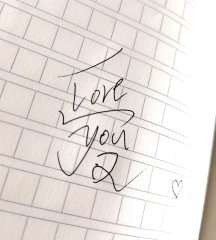 Love
you
2
♡